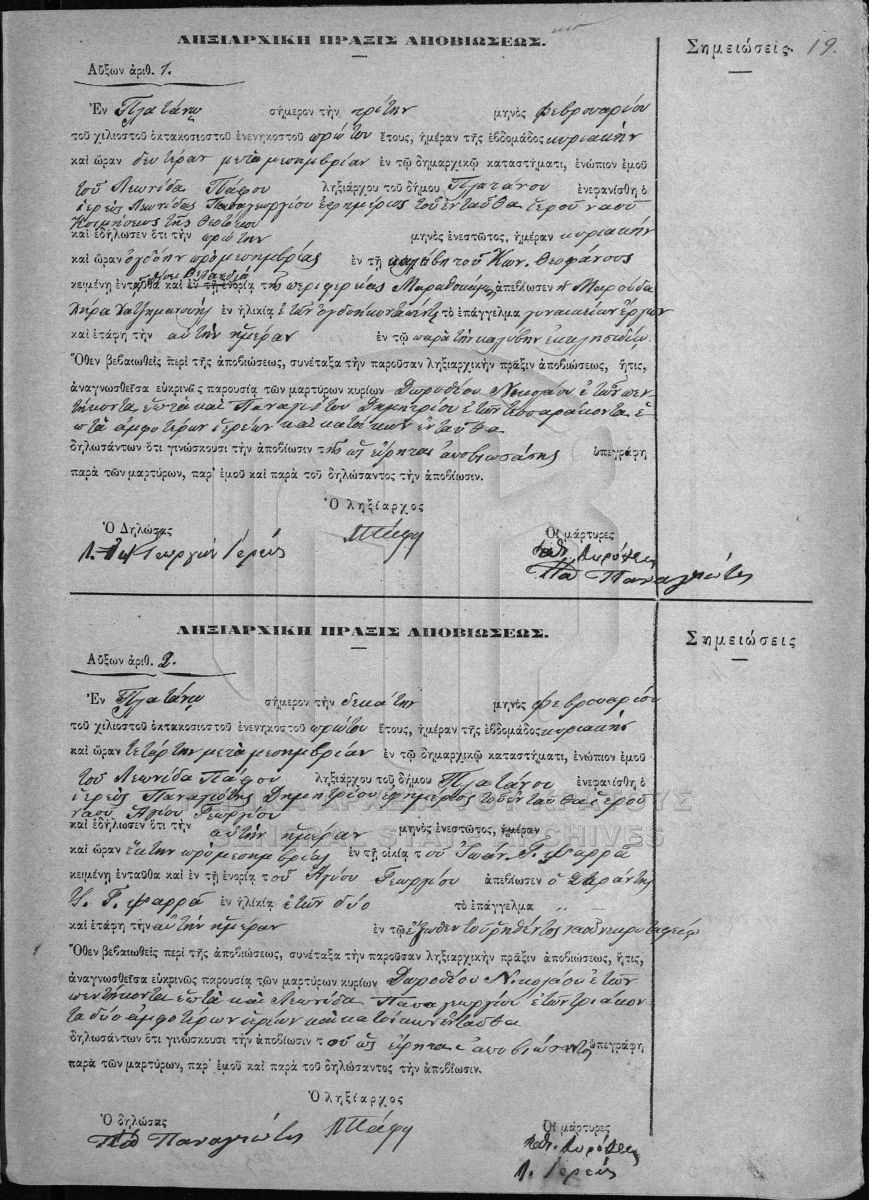 ΛΗΞΙΑΡΧΙΚΗ ΠΡΑΞΙΣ ΑΠΟΒΙΩΣΕΩΣ.
Σημειώσεις
19.
Αὔξων ἀριθ. 1.
Ἐν Πλατάνῳ σήμερον τὴν τρίτην μηνὸς Φεβρουαρίου
τοῦ χιλιοστοῦ ὀκτακοσιοστοῦ ἐνενηκοστοῦ πρώτου ἔτους, ἡμέραν τῆς ἑβδομάδος κυριακὴν
καὶ ὥραν δευτέραν μετὰ μεσημβρίαν ἐν τῷ δημαρχικῷ καταστήματι, ἐνώπιον ἐμοῦ
τοῦ Λεωνίδα Πάφου ληξιάρχου τοῦ δήμου Πλατάνου ἐνεφανίσθη ὁ
ἱερεὺς Λεωνίδας Παπαγεωργίου ἐφημέριος τοῦ ἐνταῦθα ἱεροῦ ναοῦ
Κοιμήσεως τῆς Θεοτόκου
καὶ ἐδήλωσεν ὅτι τὴν πρώτην μηνὸς ἐνεστῶτος, ἡμέραν κυριακὴν
καὶ ὥραν ὀγδόην πρὸ μεσημβρίας ἐν τῇ καλύβῃ τοῦ Κων. Θεοφάνους
κειμένῃ ἐνταῦθα καὶ ἐν τῇ ἐνορίᾳ τῆς περιφερείας ἀπεβίωσεν ἡ Μαρούδα
χήρα Χατζημανωλῆ ἐν ἡλικίᾳ ἐτῶν ὀγδοήκοντα πέντε τὸ ἐπάγγελμα γυναικείων ἔργων
καὶ ἐτάφη τὴν αὐτὴν ἡμέραν ἐν τῷ παρὰ τὴν καλύβην ἐκκλησιδίῳ
Ὅθεν βεβαιωθεὶς περὶ τῆς ἀποβιώσεως, συνέταξα τὴν παροῦσαν ληξιαρχικὴν πρᾶξιν ἀποβιώσεως, ἥτις,
ἀναγνωσθεῖσα εὐκρινῶς παρουσίᾳ τῶν μαρτύρων κυρίων Δωροθέου Νικολάου ἐτῶν πεν-
τήκοντα ἑπτὰ καὶ Παναγιώτου Δημητρίου ἐτῶν τεσσαράκοντα ἑ-
πτὰ ἀμφοτέρων ἱερέων καὶ κατοίκων ἐνταῦθα
δηλωσάντων ὅτι γινώσκουσι τὴν ἀποβίωσιν τῆς ὡς εἴρηται ἀποβιωσάσης ὑπεγράφη
παρὰ τῶν μαρτύρων, παρ' ἐμοῦ καὶ παρὰ τοῦ δηλώσαντος τὴν ἀποβίωσιν.
Ὁ ληξίαρχος
Ὁ Δηλώσας
Οἱ μάρτυρες
Λ. Πάφου
Παπᾶ Παναγιώτης
ΛΗΞΙΑΡΧΙΚΗ ΠΡΑΞΙΣ ΑΠΟΒΙΩΣΕΩΣ.
Σημειώσεις
Αὔξων ἀριθ. 2.
Ἐν Πλατάνῳ σήμερον τὴν δεκάτην μηνὸς Φεβρουαρίου
τοῦ χιλιοστοῦ ὀκτακοσιοστοῦ ἐνενηκοστοῦ πρώτου ἔτους, ἡμέραν τῆς ἑβδομάδος κυριακὴν
καὶ ὥραν τετάρτην μετὰ μεσημβρίαν ἐν τῷ δημαρχικῷ καταστήματι, ἐνώπιον ἐμοῦ
τοῦ Λεωνίδα Πάφου ληξιάρχου τοῦ δήμου Πλατάνου ἐνεφανίσθη ὁ
ἱερεὺς Παναγιώτης Δημητρίου ἐφημέριος τοῦ ἐνταῦθα ἱεροῦ
ναοῦ Ἁγίου Γεωργίου
καὶ ἐδήλωσεν ὅτι τὴν αὐτὴν ἡμέραν μηνὸς ἐνεστῶτος, ἡμέραν
καὶ ὥραν ἕκτην πρὸ μεσημβρίας ἐν τῇ οἰκίᾳ τοῦ Ἰωάν. Γ. Ψαρρᾶ
κειμένῃ ἐνταῦθα καὶ ἐν τῇ ἐνορίᾳ τοῦ Ἁγίου Γεωργίου ἀπεβίωσεν ὁ Στρατῆς
Ἰ. Γ. Ψαρρᾶ ἐν ἡλικίᾳ ἐτῶν δύο τὸ ἐπάγγελμα
καὶ ἐτάφη τὴν αὐτὴν ἡμέραν ἐν τῷ ἔξωθεν τοῦ ῥηθέντος ναοῦ νεκροταφείῳ
Ὅθεν βεβαιωθεὶς περὶ τῆς ἀποβιώσεως, συνέταξα τὴν παροῦσαν ληξιαρχικὴν πρᾶξιν ἀποβιώσεως, ἥτις,
ἀναγνωσθεῖσα εὐκρινῶς παρουσίᾳ τῶν μαρτύρων κυρίων Δωροθέου Νικολάου ἐτῶν
πεντήκοντα ἑπτὰ καὶ Λεωνίδα Παπαγεωργίου ἐτῶν τριακον-
τα δύο ἀμφοτέρων ἱερέων καὶ κατοίκων ἐνταῦθα
δηλωσάντων ὅτι γινώσκουσι τὴν ἀποβίωσιν τοῦ ὡς εἴρηται ἀποβιώσαντος ὑπεγράφη
παρὰ τῶν μαρτύρων, παρ' ἐμοῦ καὶ παρὰ τοῦ δηλώσαντος τὴν ἀποβίωσιν.
Ὁ ληξίαρχος
Ὁ δηλώσας
Οἱ μάρτυρες
Παπᾶ Παναγιώτης
Λ Πάφου
Λ. Ἱερεύς
GENERAL STATE ARCHIVES